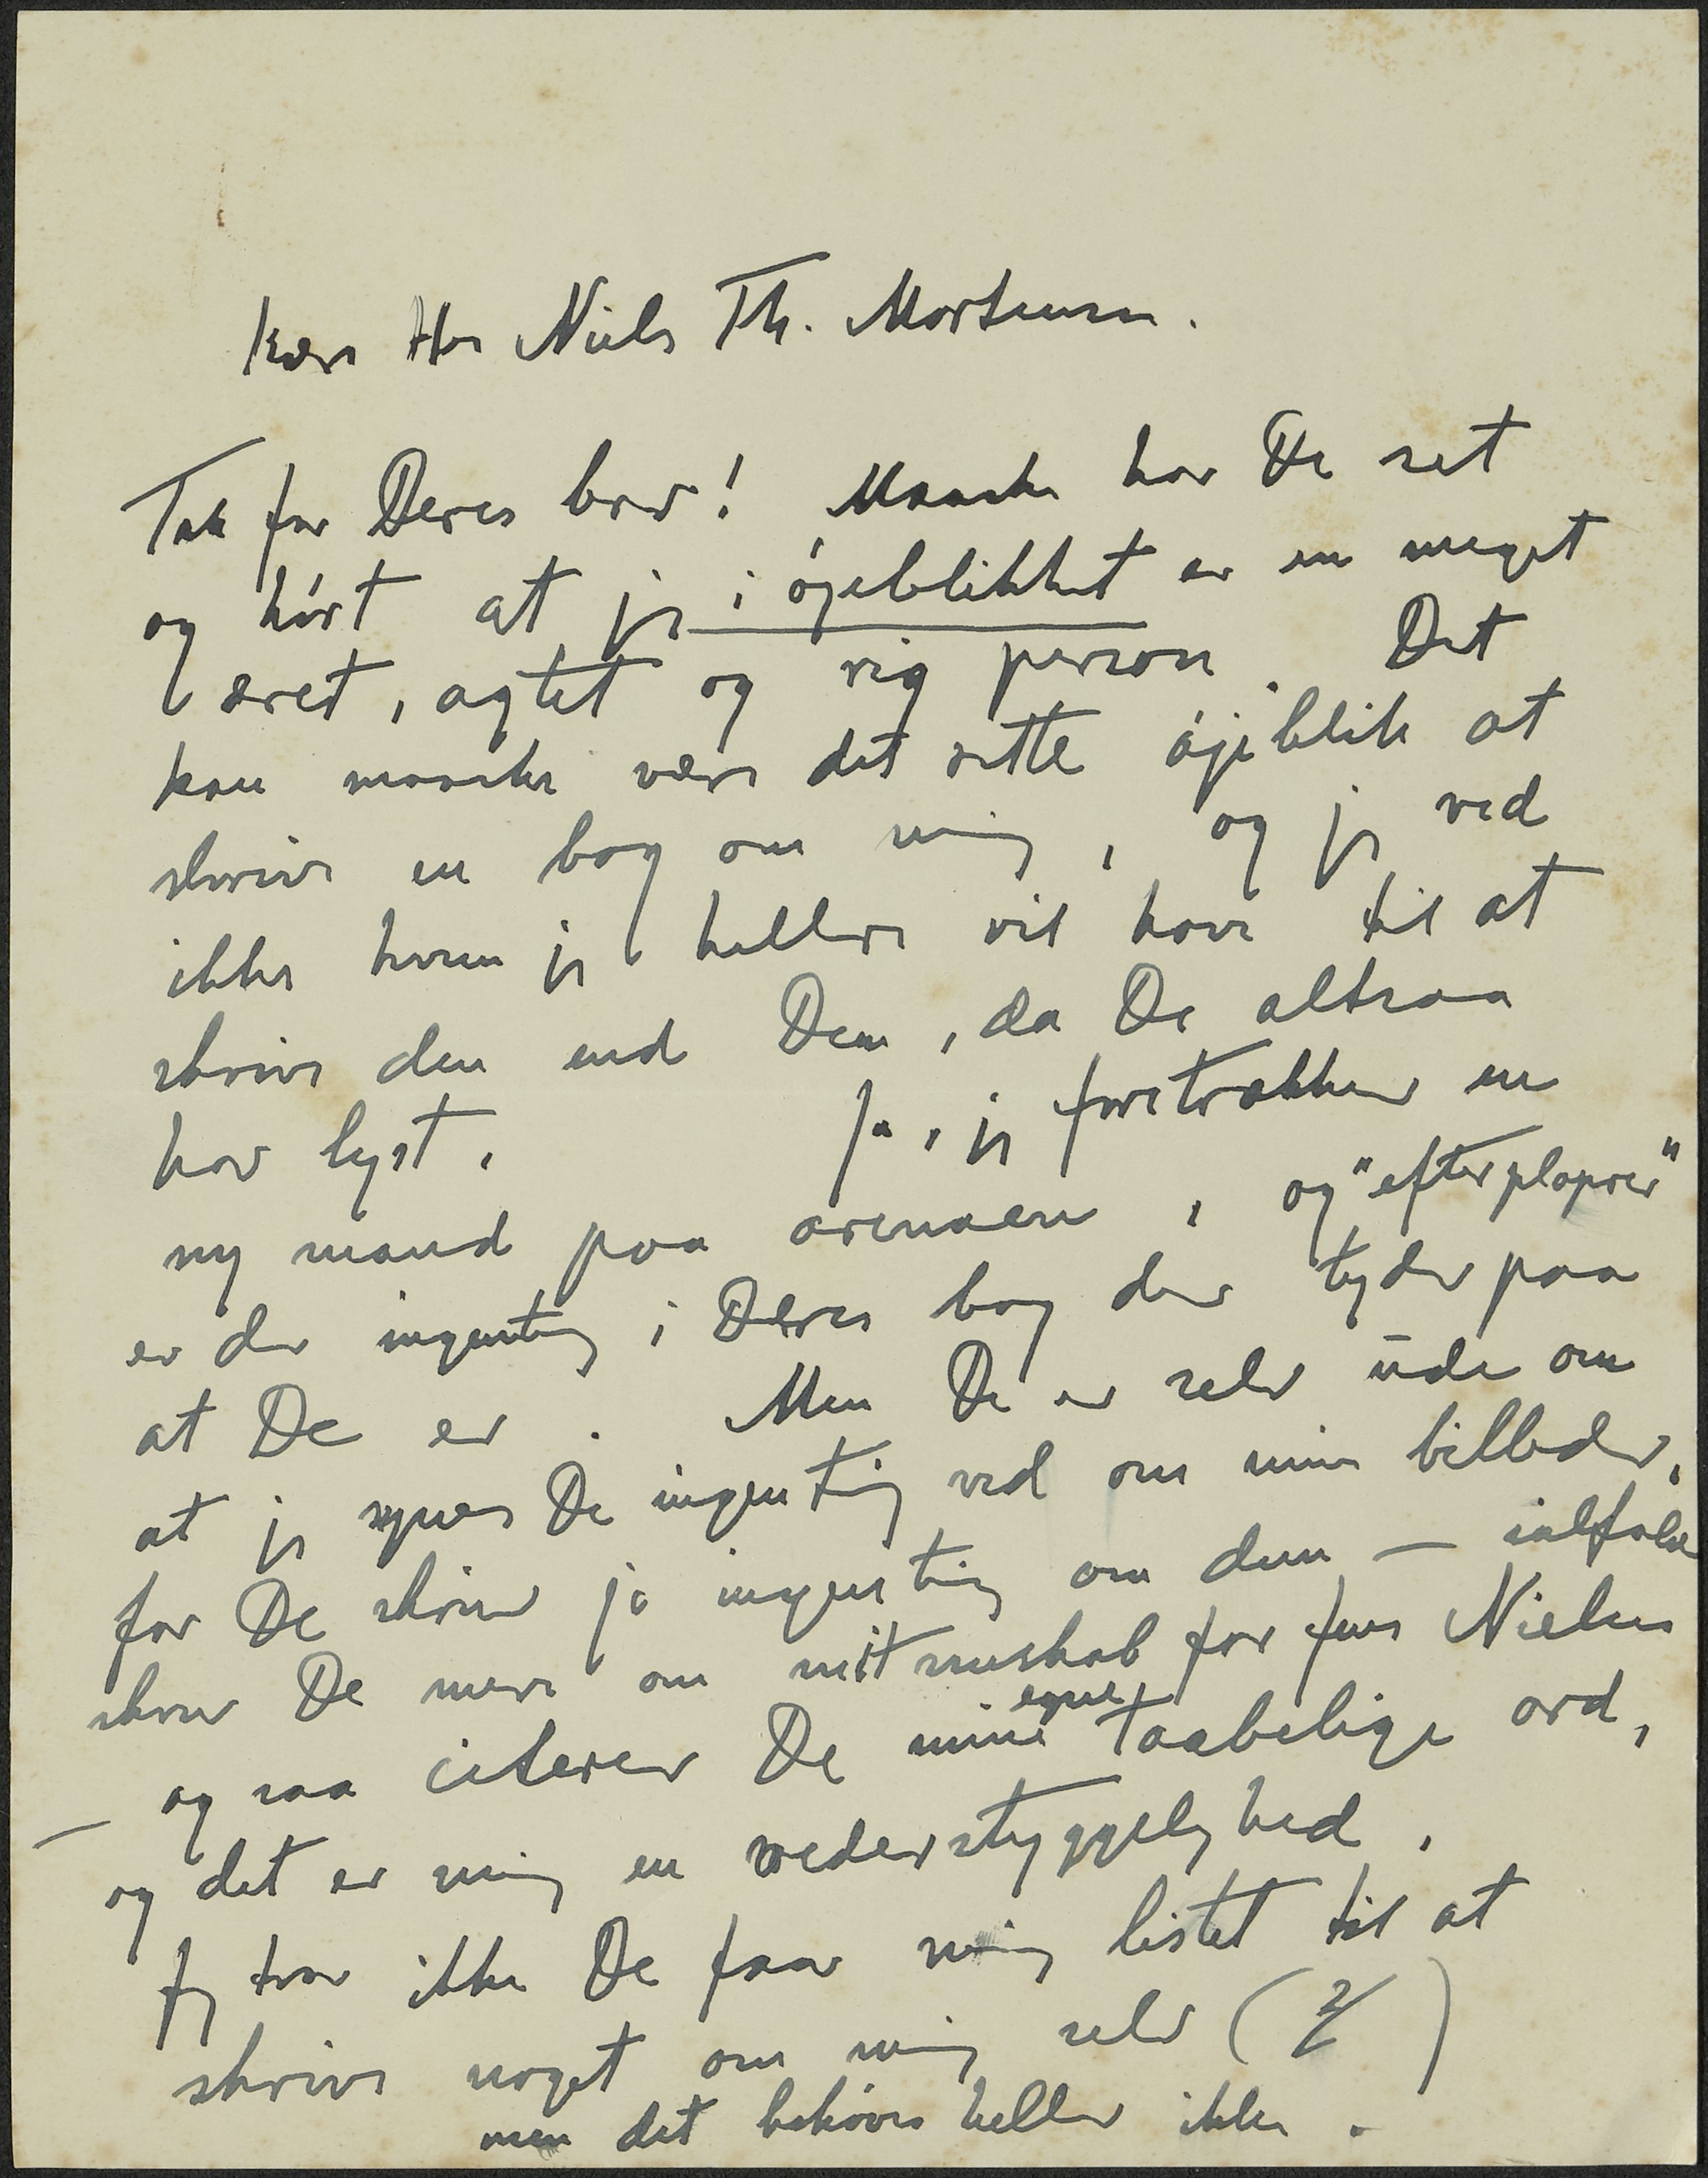 Kære Hr Niels Th. Mortensen.
Tak for Deres brev! Maaske har De set
og hørt at jeg i øjeblikket er en meget
æret, agtet og rig person. Det
kan maaske være det rette øjeblik at
skrive en bog om mig, og jeg ved
ikke hvem jeg hellere vil have til at
skrive den end Dem, da De altsaa
har lyst. Ja, jeg foretrækker en
ny mand paa arenaen, og "efterplaprer"
er der ingenting i Deres bog der tyder paa
at De er. Men De er selv ude om
at jeg synes De ingenting ved om mine billeder,
for De skriver jo ingenting om dem — ialfald
skrev De mere om mit venskab for Jens Nielsen
— og saa citerer De mine egne taabelige ord,
og det er mig en vederstyggelighed.
Jeg tror ikke De faar mig listet til at
skrive noget om mig selv ( )
men det behøves heller ikke.